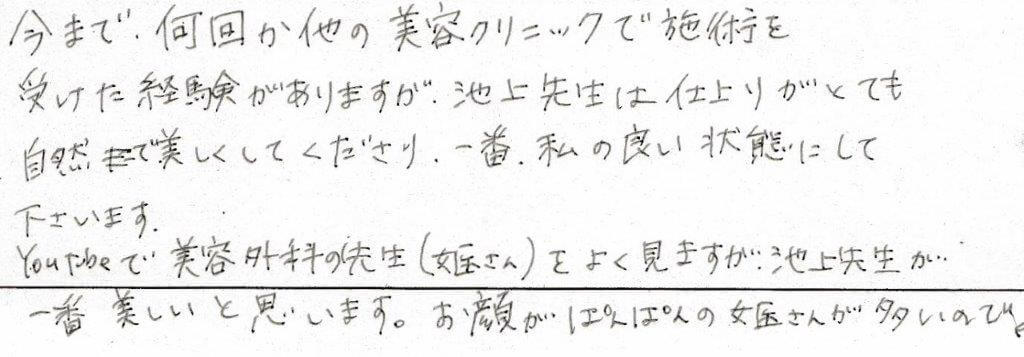 今まで、何回か他の美容クリニックで施術を
受けた経験がありますが、池上先生は仕上りがとても
自然で美しくしてくださり、一番、私の良い状態にして
下さいます。
Youtubeで美容外科の先生(女医さん)をよく見ますが、池上先生が
一番美しいと思います。お顔がぱんぱんの女医さんが多いので。